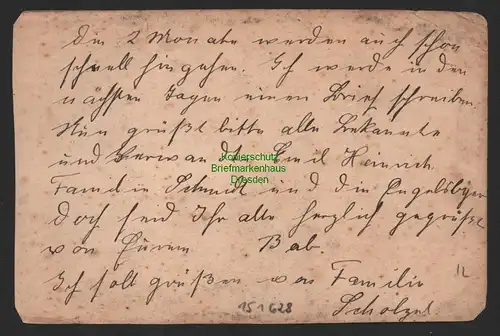 Die 2 Monate werden auch schon
schnell hingehen. Ich werde in den
nächsten Tagen einen Brief schreiben.
Nun grüßt bitte alle Bekannte
und Verwandte Emil Heinrich
Kopierschutz
Briefmarkenhaus
Dresden
Familie Schmidt und die
Doch seid Ihr alle herzlich gegrüßt
von Eurem Bab.
Ich soll grüßen von Familie
Scholzel
12
151628